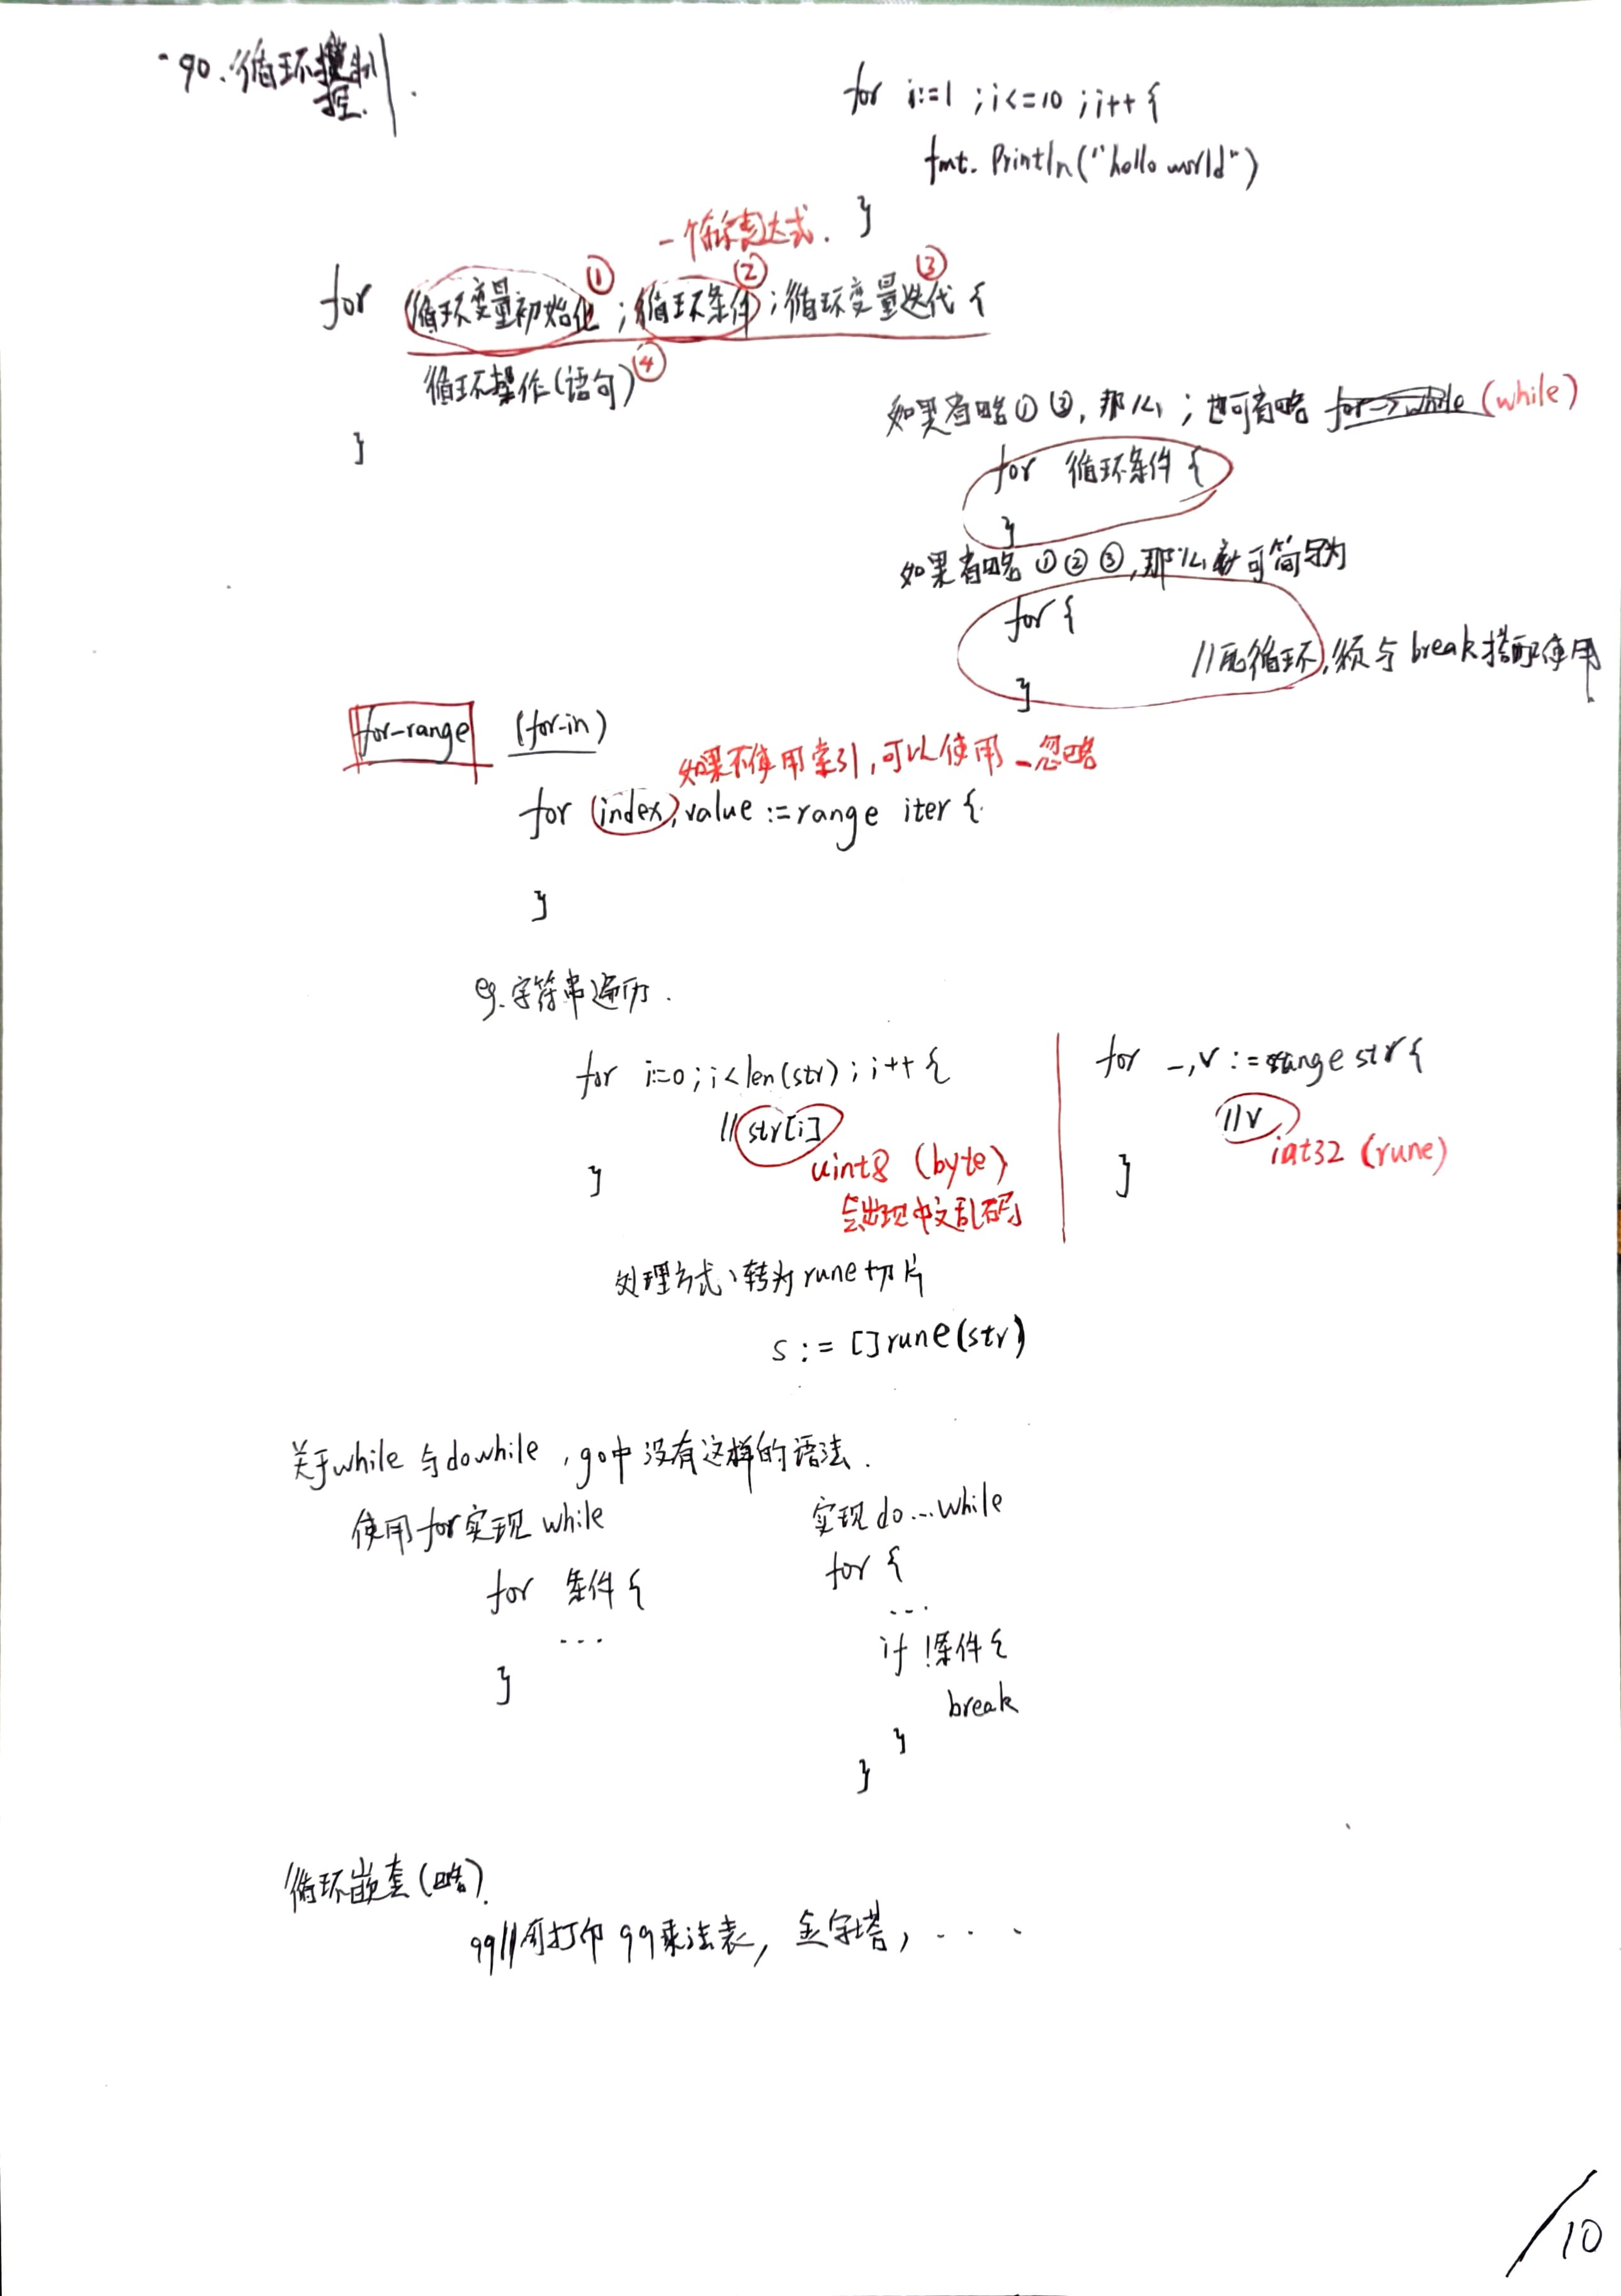 go.循环控制
for i:=1 ;i<=10 ;i++ {
fmt. Println("hello world")
}
for 循环变量初始化① ;循环条件② ;循环变量迭代③ {
循环操作(语句)④
}
如果省略①③,那么;也可省略 (while)
for 循环条件 {
}
如果省略①②③,那么就可简写为
for {
//死循环,须与break搭配使用
}
for-range (for-in)
如果不使用索引,可以使用_忽略
for index,value :=range iter {
}
eg.字符串遍历.
for i:=0;i<len(str);i++ {
//str[i]
uint8 (byte)
会出现中文乱码
}
for _,v :=range str {
//v
int32 (rune)
}
处理方式、转为rune切片
s := []rune(str)
关于while与dowhile,go中没有这样的语法.
使用for实现while
for 条件 {
...
}
实现do...while
for {
...
if !条件 {
break
}
}
循环嵌套(略).
打印99乘法表,金字塔,....
10